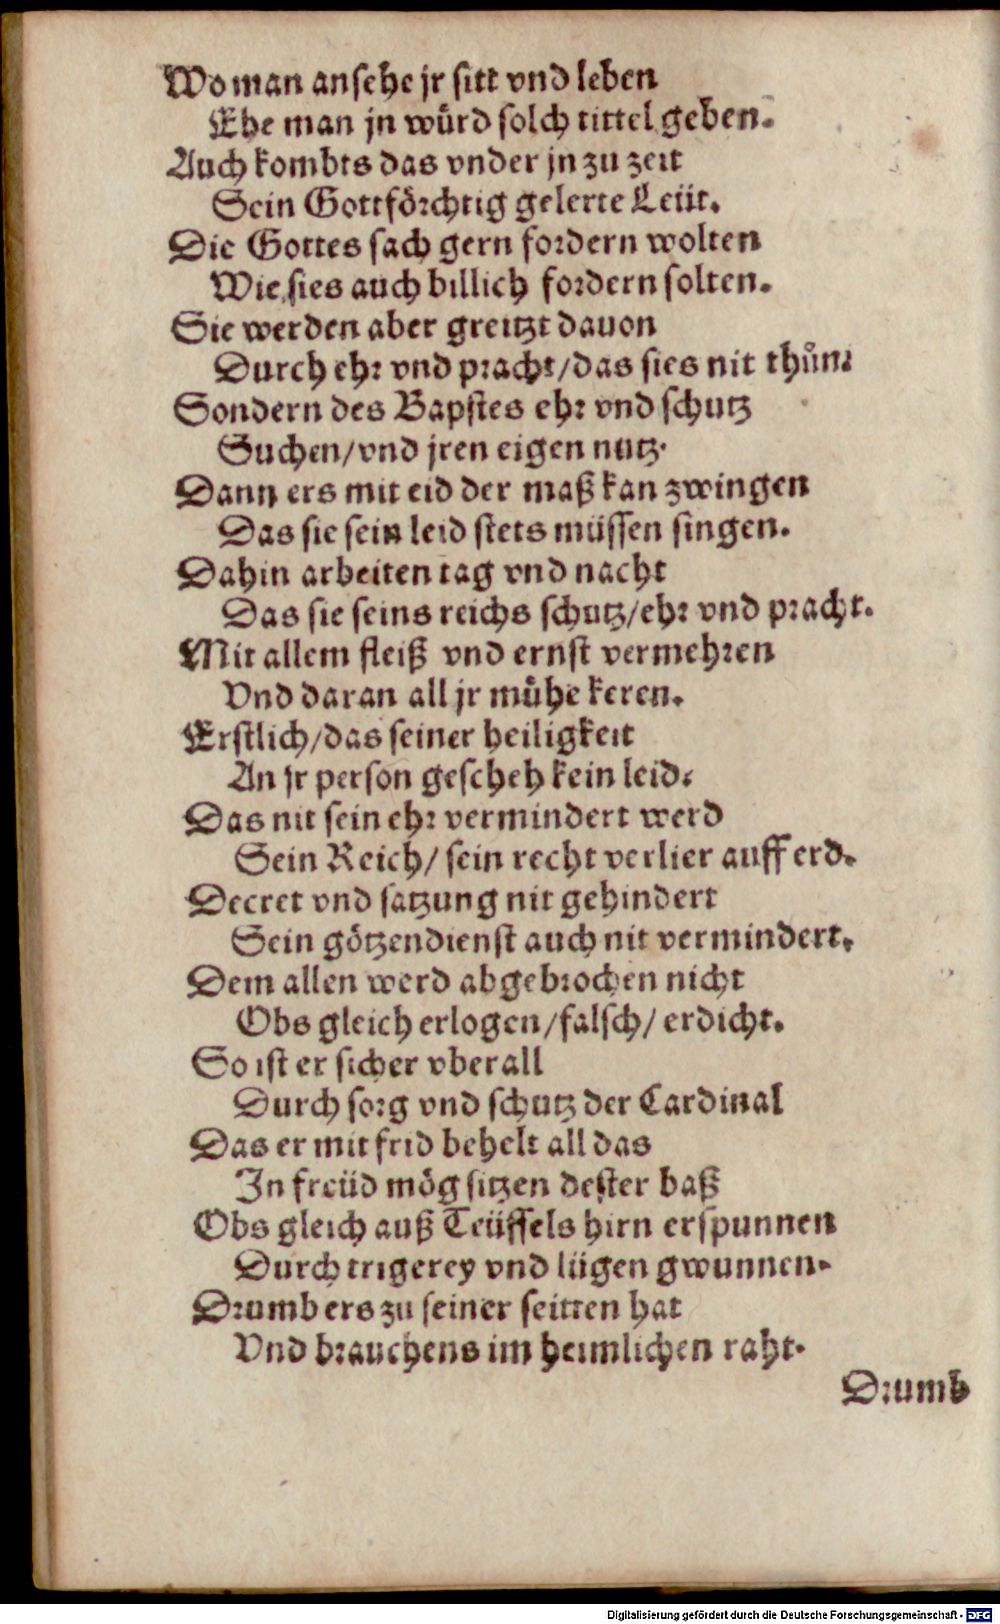 Wo man ansehe jr sitt vnd leben
Ehe man jn wuͤrd solch tittel geben.
Auch kombts das vnder jn zu zeit
Sein Gottförchtig gelerte Leüt.
Die Gottes sach gern fordern wolten
Wie sies auch billich fordern solten.
Sie werden aber greitzt dauon
Durch ehr vnd pracht/das sies nit thuͦn.
Sondern des Bapstes ehr vnd schutz
Suchen/vnd jren eigen nutz.
Dann ers mit eid der maß kan zwingen
Das sie sein leid stets müssen singen.
Dahin arbeiten tag vnd nacht
Das sie seins reichs schutz/ehr vnd pracht.
Mit allem fleiß vnd ernst vermehren
Vnd daran all jr muͤhe keren.
Erstlich/das seiner heiligkeit
An jr person gescheh kein leid.
Das nit sein ehr vermindert werd
Sein Reich/ sein recht verlier auff erd.
Decret vnd satzung nit gehindert
Sein götzendienst auch nit vermindert.
Dem allen werd abgebrochen nicht
Obs gleich erlogen/falsch/ erdicht.
So ist er sicher vberall
Durch sorg vnd schutz der Cardinal
Das er mit frid behelt all das
In freüd mög sitzen dester baß
Obs gleich auß Teüffels hirn erspunnen
Durch trigerey vnd lügen gwunnen.
Drumb ers zu seiner seitten hat
Vnd brauchens im heimlichen raht.
Drumb
Digitalisierung gefördert durch die Deutsche Forschungsgemeinschaft - DFG